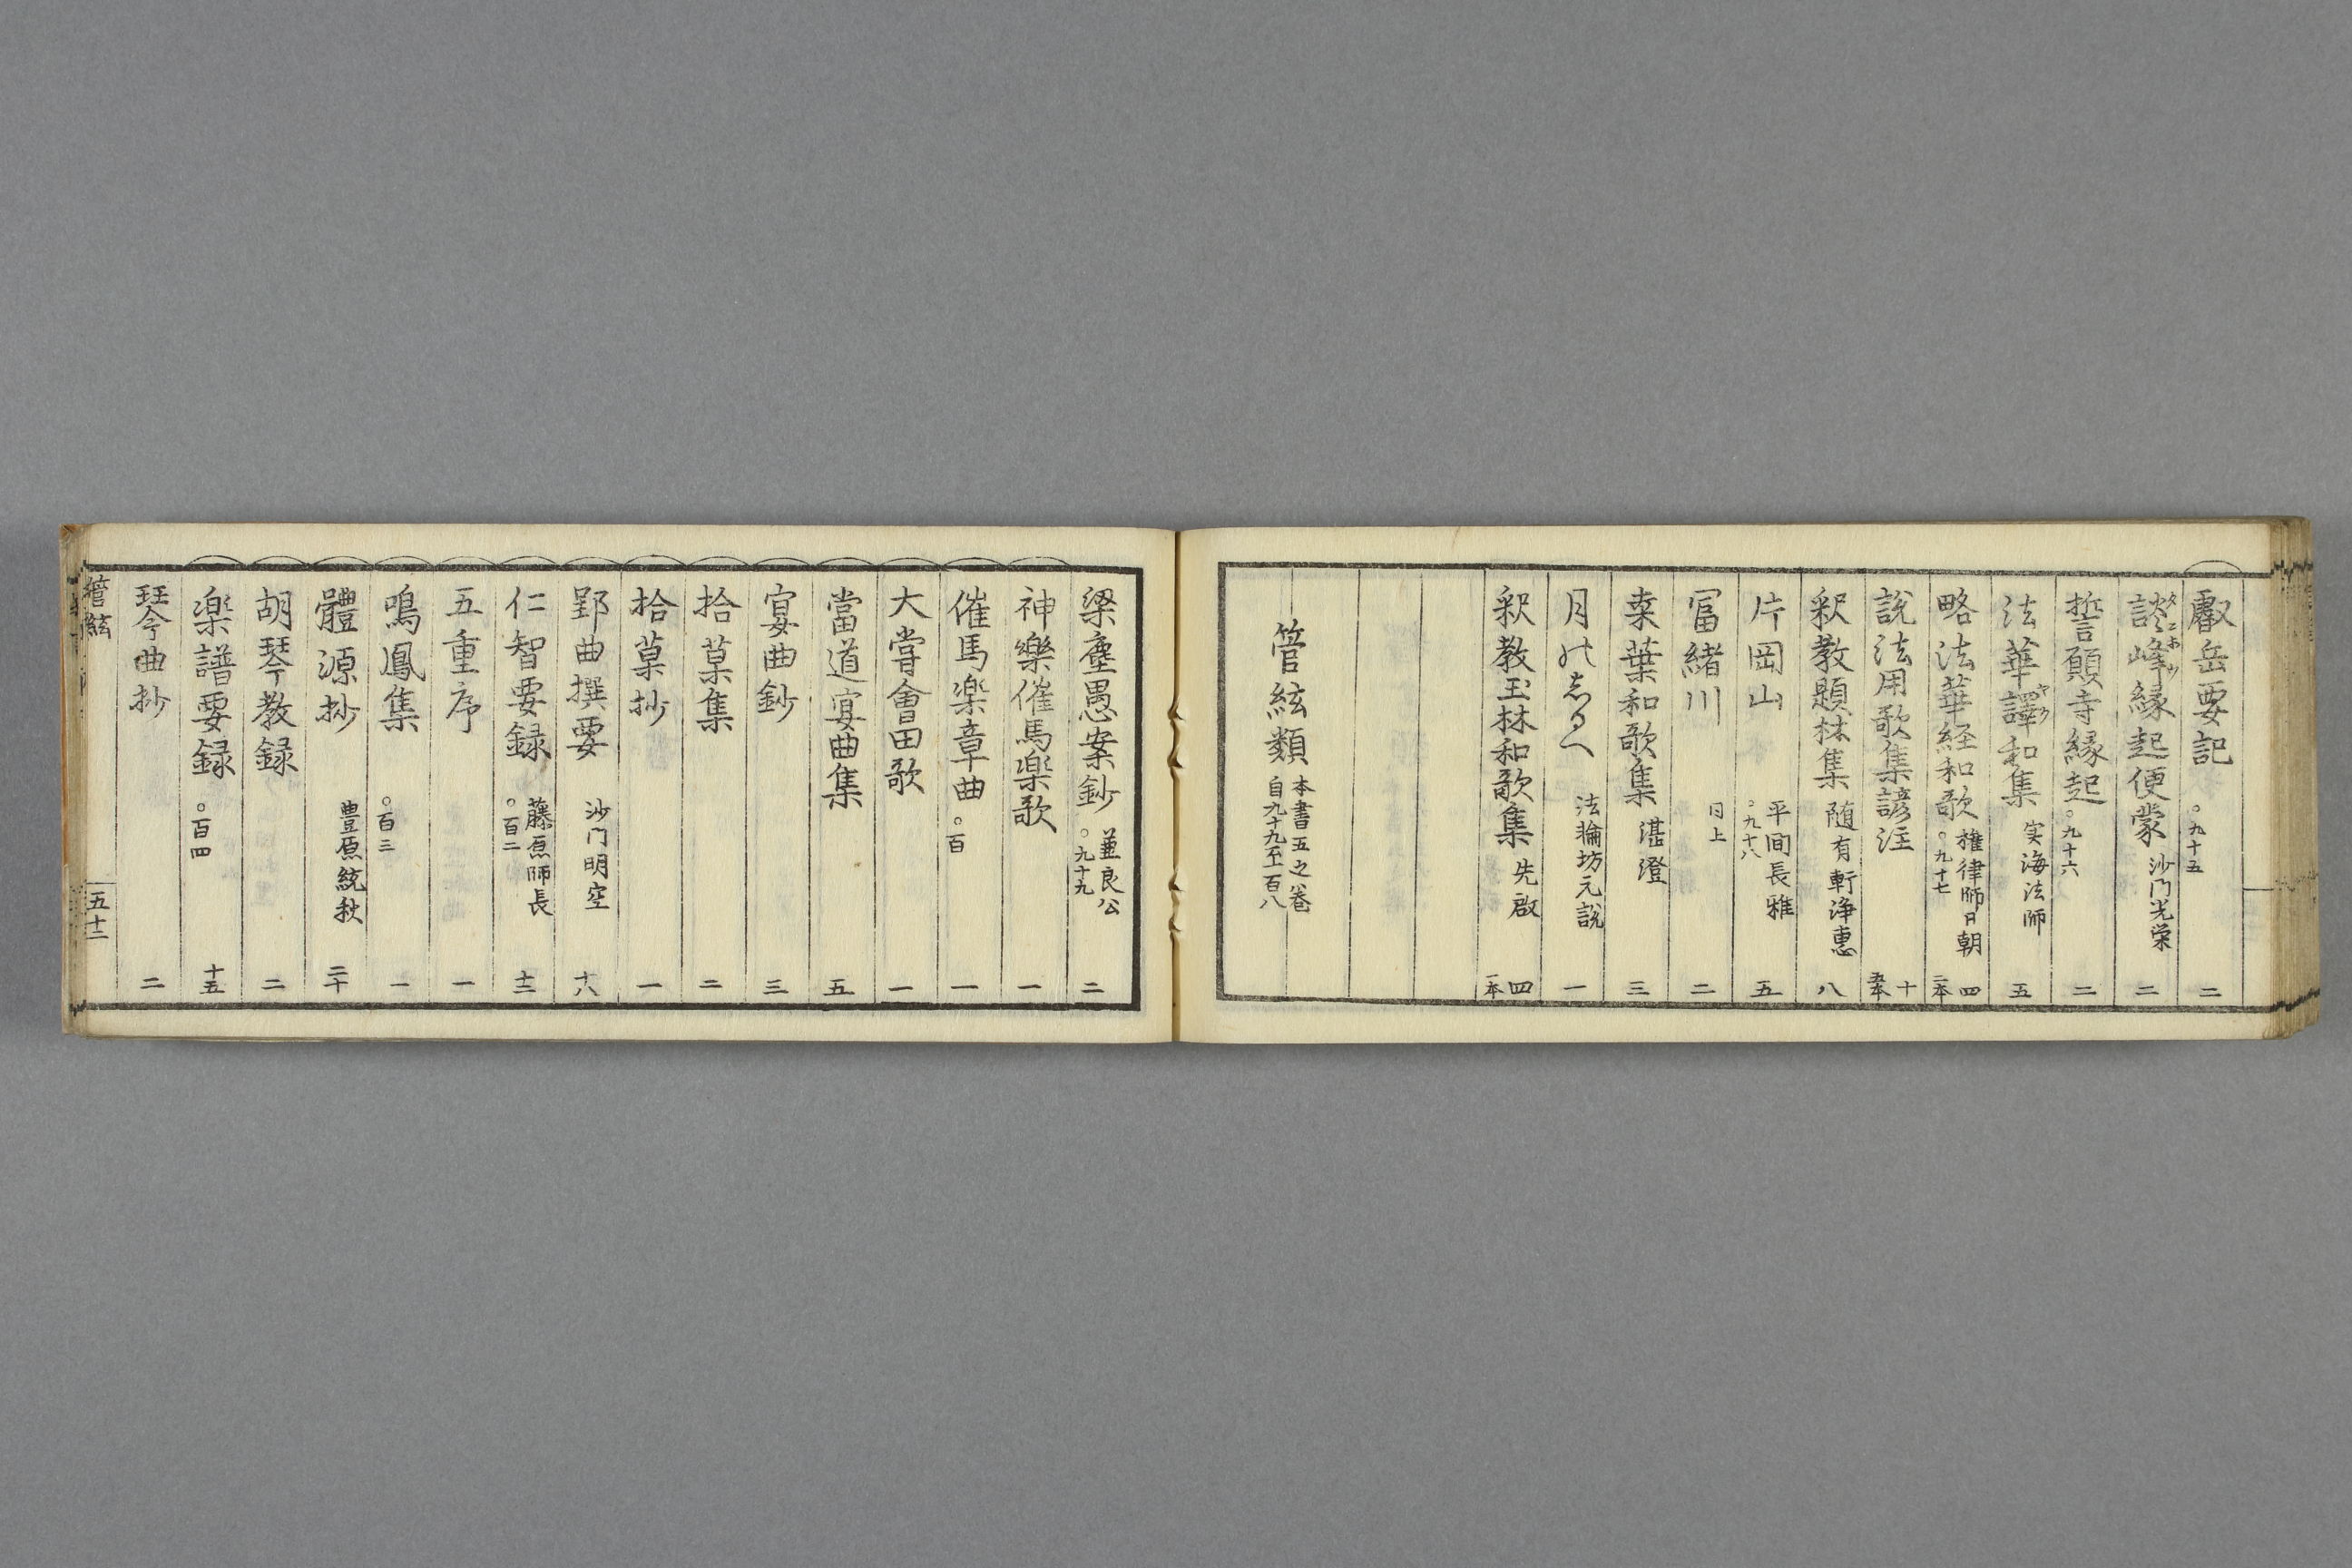 叡岳要記 。九十五 二
談峰縁起便蒙 沙门光栄 二
誓願寺縁起 。九十六 二
法華譯和集 実海法师 五
略法華経和歌 権律师日朝 。九十七 四 三本
説法用歌集諺註 十 五本
釈教題林集 随有軒浄恵 八
片岡山 平间長雅 。九十八 五
冨緒川 同上 二
桒葉和歌集 湛澄 三
月のしるへ 法輪坊元説 一
釈教玉林和歌集 先啟 四 一本
管絃類 本書五之巻 自九十九至一百八
梁塵愚案鈔 兼良公 。九十九 二
神樂催馬楽歌 一
催馬楽章曲 。百 一
大嘗會田歌 一
當道宴曲集 五
宴曲鈔 三
拾菓集 二
拾菓抄 一
郢曲撰要 沙门明空 十八
仁智要録 藤原师長 。百二 十二
五重序 一
鳴鳳集 。百三 一
體源抄 豊原統秋 二十
胡琴教録 二
楽譜要録 。百四 十五
琴曲抄 二
管絃 五十二